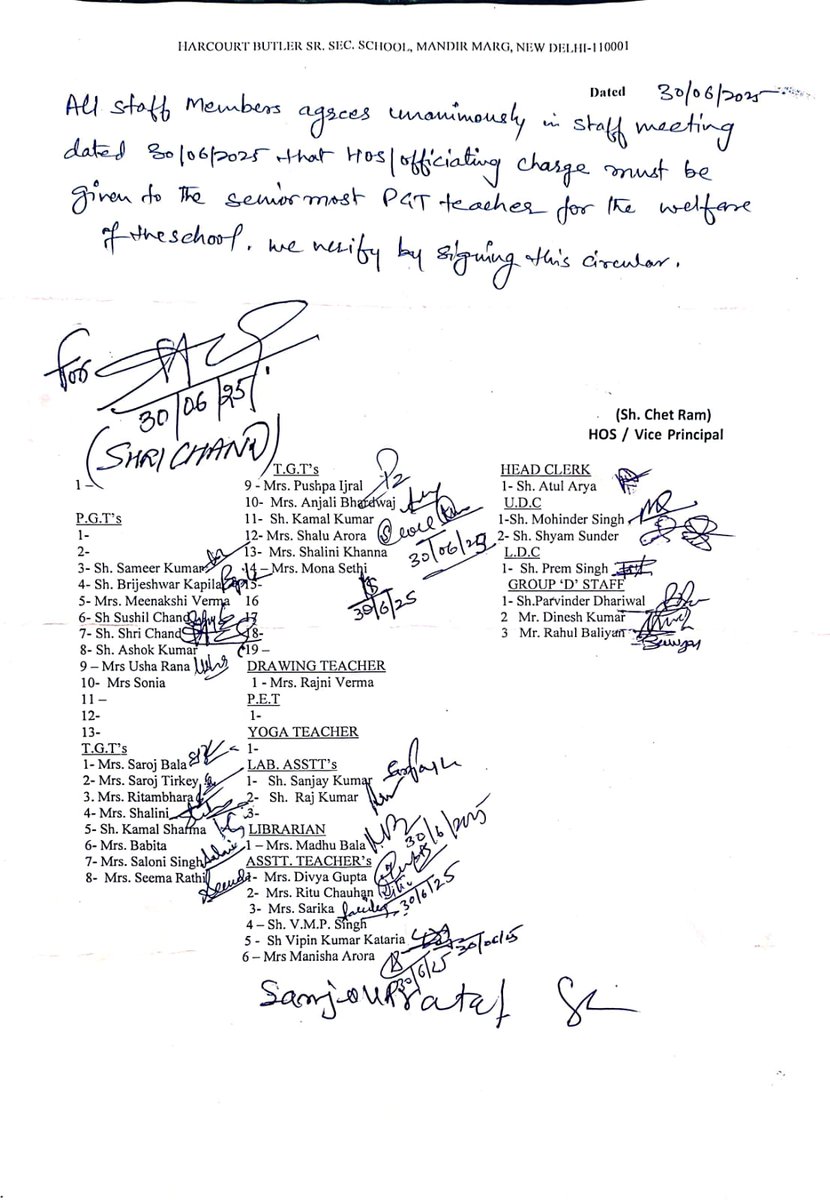 HARCOURT BUTLER SR. SEC. SCHOOL, MANDIR MARG, NEW DELHI-110001
Dated 30/06/2025
All staff Members agrees unanimously in staff meeting
dated 30/06/2025 that HOS/officiating charge must be
given to the seniormost PGT teacher for the welfare
of the school. we verify by signing this circular.
For
30/06/25
(SHRI CHAND)
(Sh. Chet Ram)
HOS / Vice Principal
1 –
P.G.T's
1-
2-
3- Sh. Sameer Kumar
4- Sh. Brijeshwar Kapila
5- Mrs. Meenakshi Verma
6- Sh Sushil Chand
7- Sh. Shri Chand
8- Sh. Ashok Kumar
9 – Mrs Usha Rana
10- Mrs Sonia
11 –
12-
13-
T.G.T's
1- Mrs. Saroj Bala
2- Mrs. Saroj Tirkey
3. Mrs. Ritambhara
4- Mrs. Shalini
5- Sh. Kamal Sharma
6- Mrs. Babita
7- Mrs. Saloni Singh
8- Mrs. Seema Rathi
T.G.T's
9 - Mrs. Pushpa Ijral
10- Mrs. Anjali Bhardwaj
11- Sh. Kamal Kumar
12- Mrs. Shalu Arora
13- Mrs. Shalini Khanna
30/06/25
14 – Mrs. Mona Sethi
15-
30/6/25
16
17
18-
19 –
DRAWING TEACHER
1 - Mrs. Rajni Verma
P.E.T
1-
YOGA TEACHER
1-
LAB. ASSTT's
1- Sh. Sanjay Kumar
2- Sh. Raj Kumar
3-
LIBRARIAN
1 – Mrs. Madhu Bala
30/6/2025
ASSTT. TEACHER's
1- Mrs. Divya Gupta
2- Mrs. Ritu Chauhan
3- Mrs. Sarika
30/6/25
4 – Sh. V.M.P. Singh
5 - Sh Vipin Kumar Kataria
30/06/25
6 – Mrs Manisha Arora
30/6/25
HEAD CLERK
1- Sh. Atul Arya
U.D.C
1-Sh. Mohinder Singh
2- Sh. Shyam Sunder
L.D.C
1- Sh. Prem Singh
GROUP 'D' STAFF
1- Sh.Parvinder Dhariwal
2 Mr. Dinesh Kumar
3 Mr. Rahul Baliyan